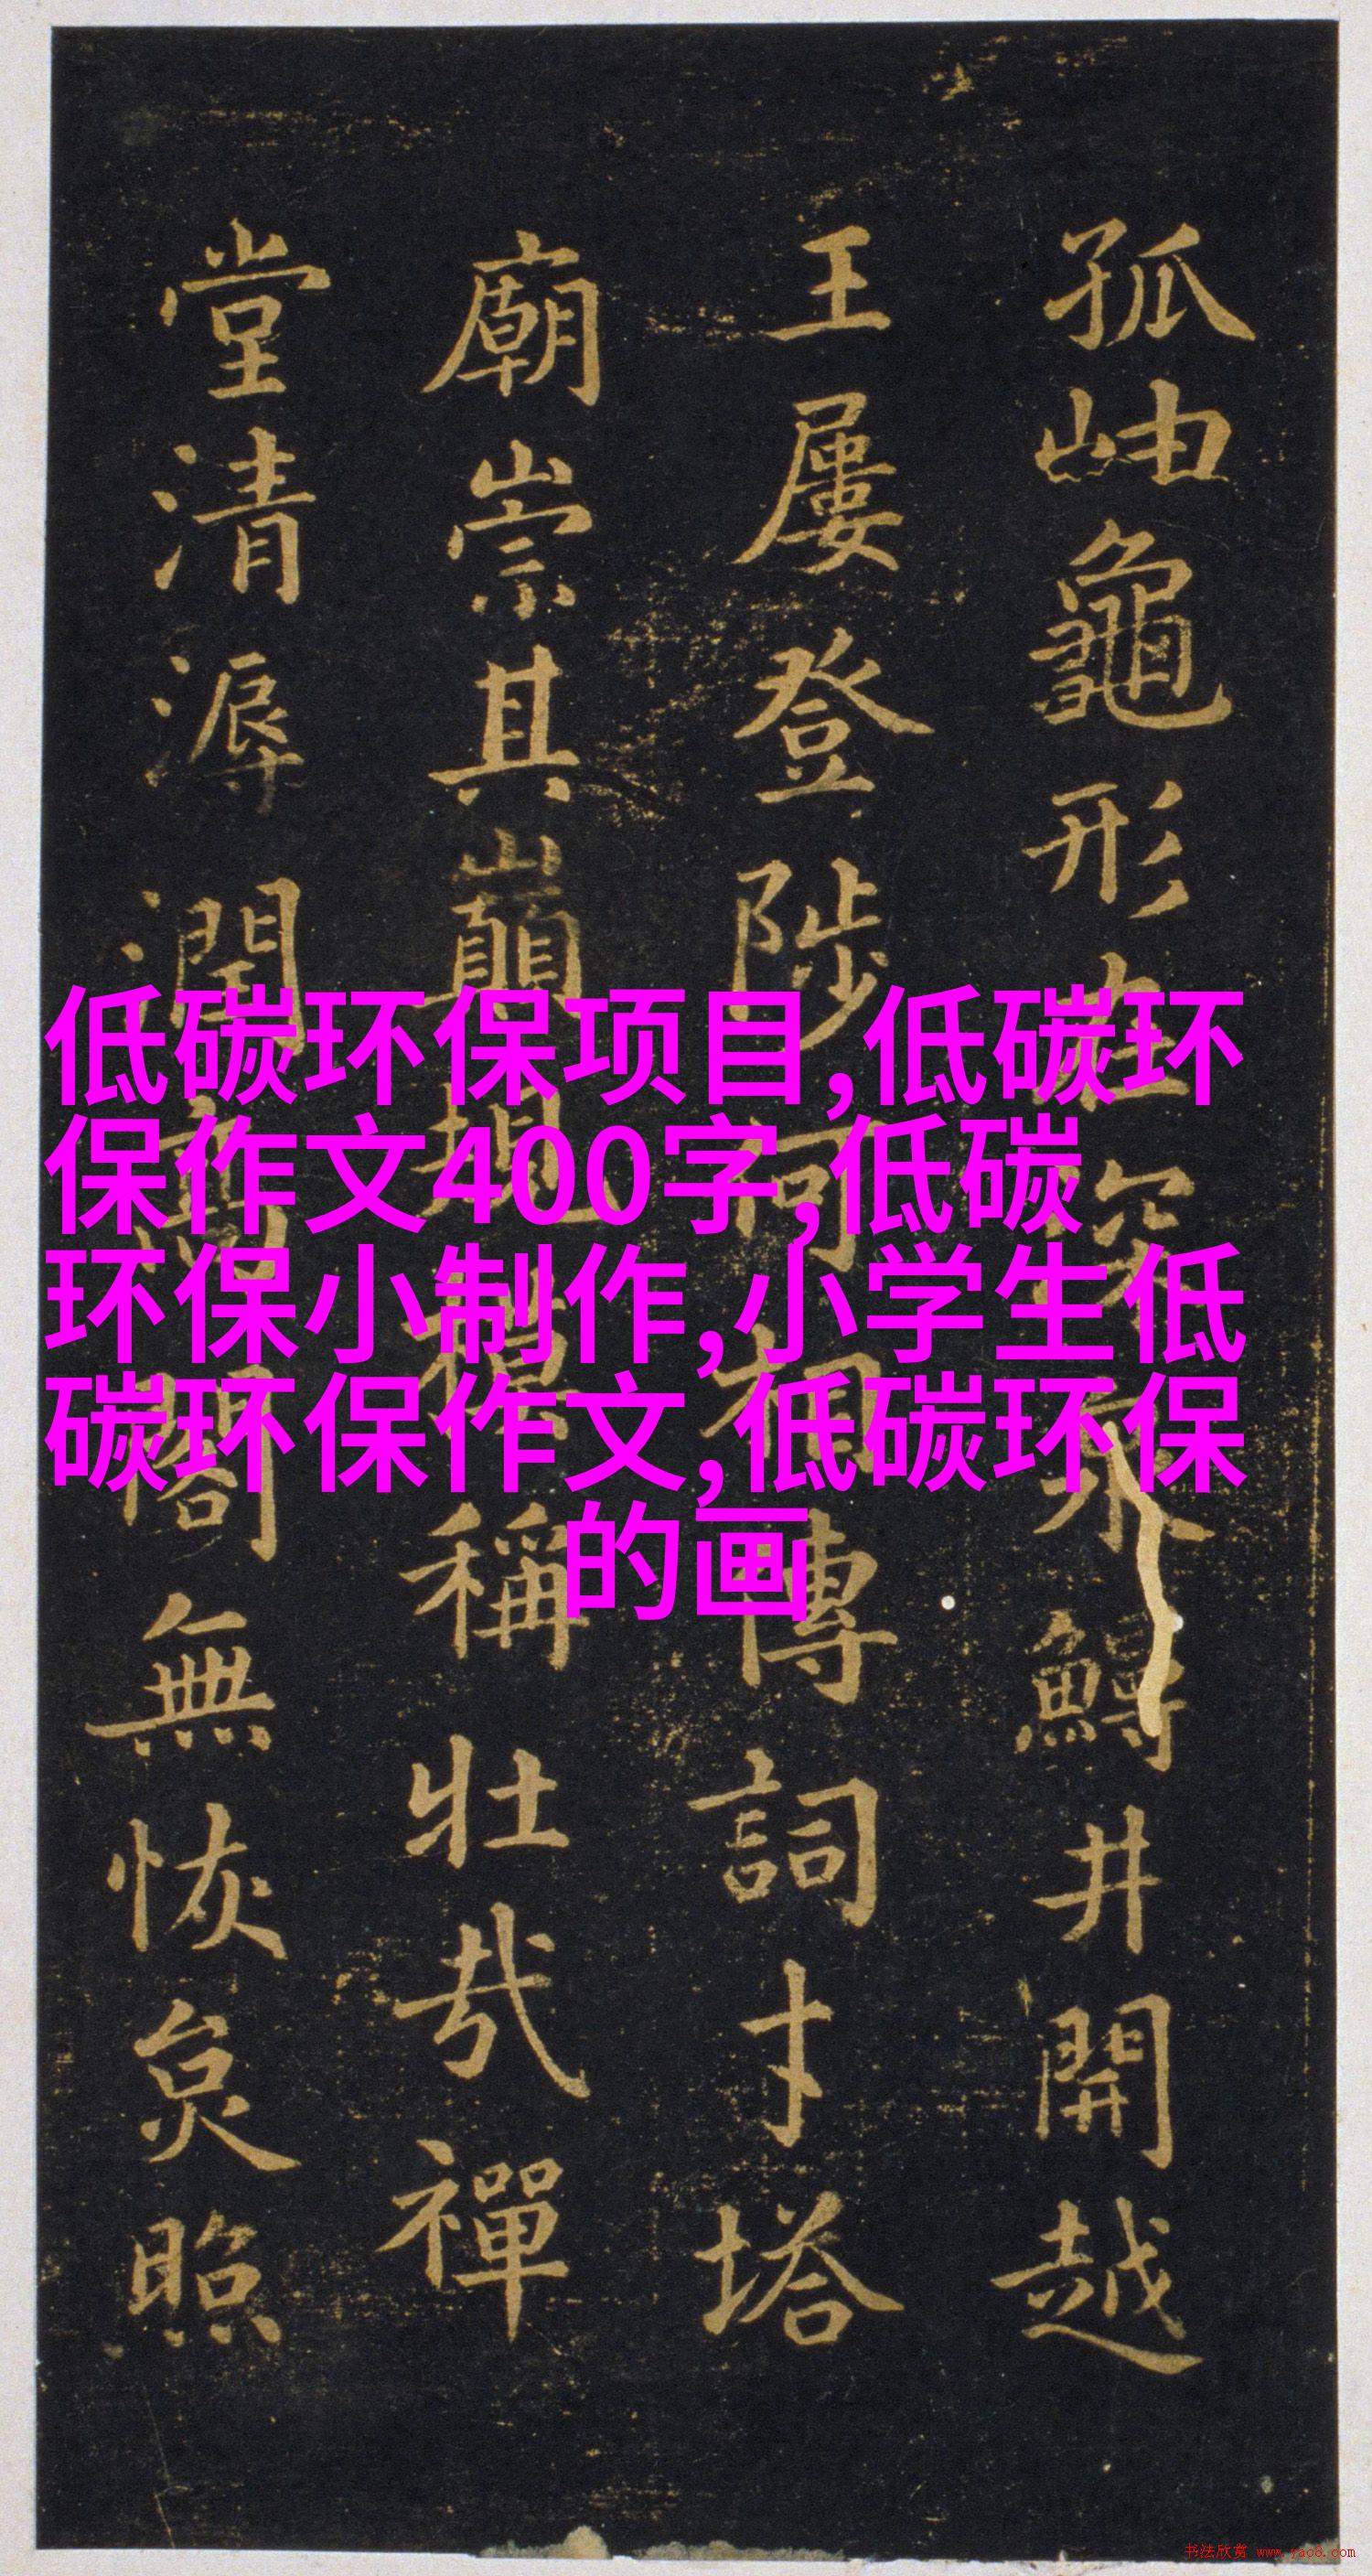 低碳环保项目,低碳环
保作文400字,低碳
环保小制作,小学生低
碳环保作文,低碳环保
的画
孤岫龜形在深泉鱒井開越
王屢登陟何相傳詞才塔
廟崇其巔
稱壯哉禪
堂清溽潤
閣無恢炱照
书法欣赏 www.yac8.com